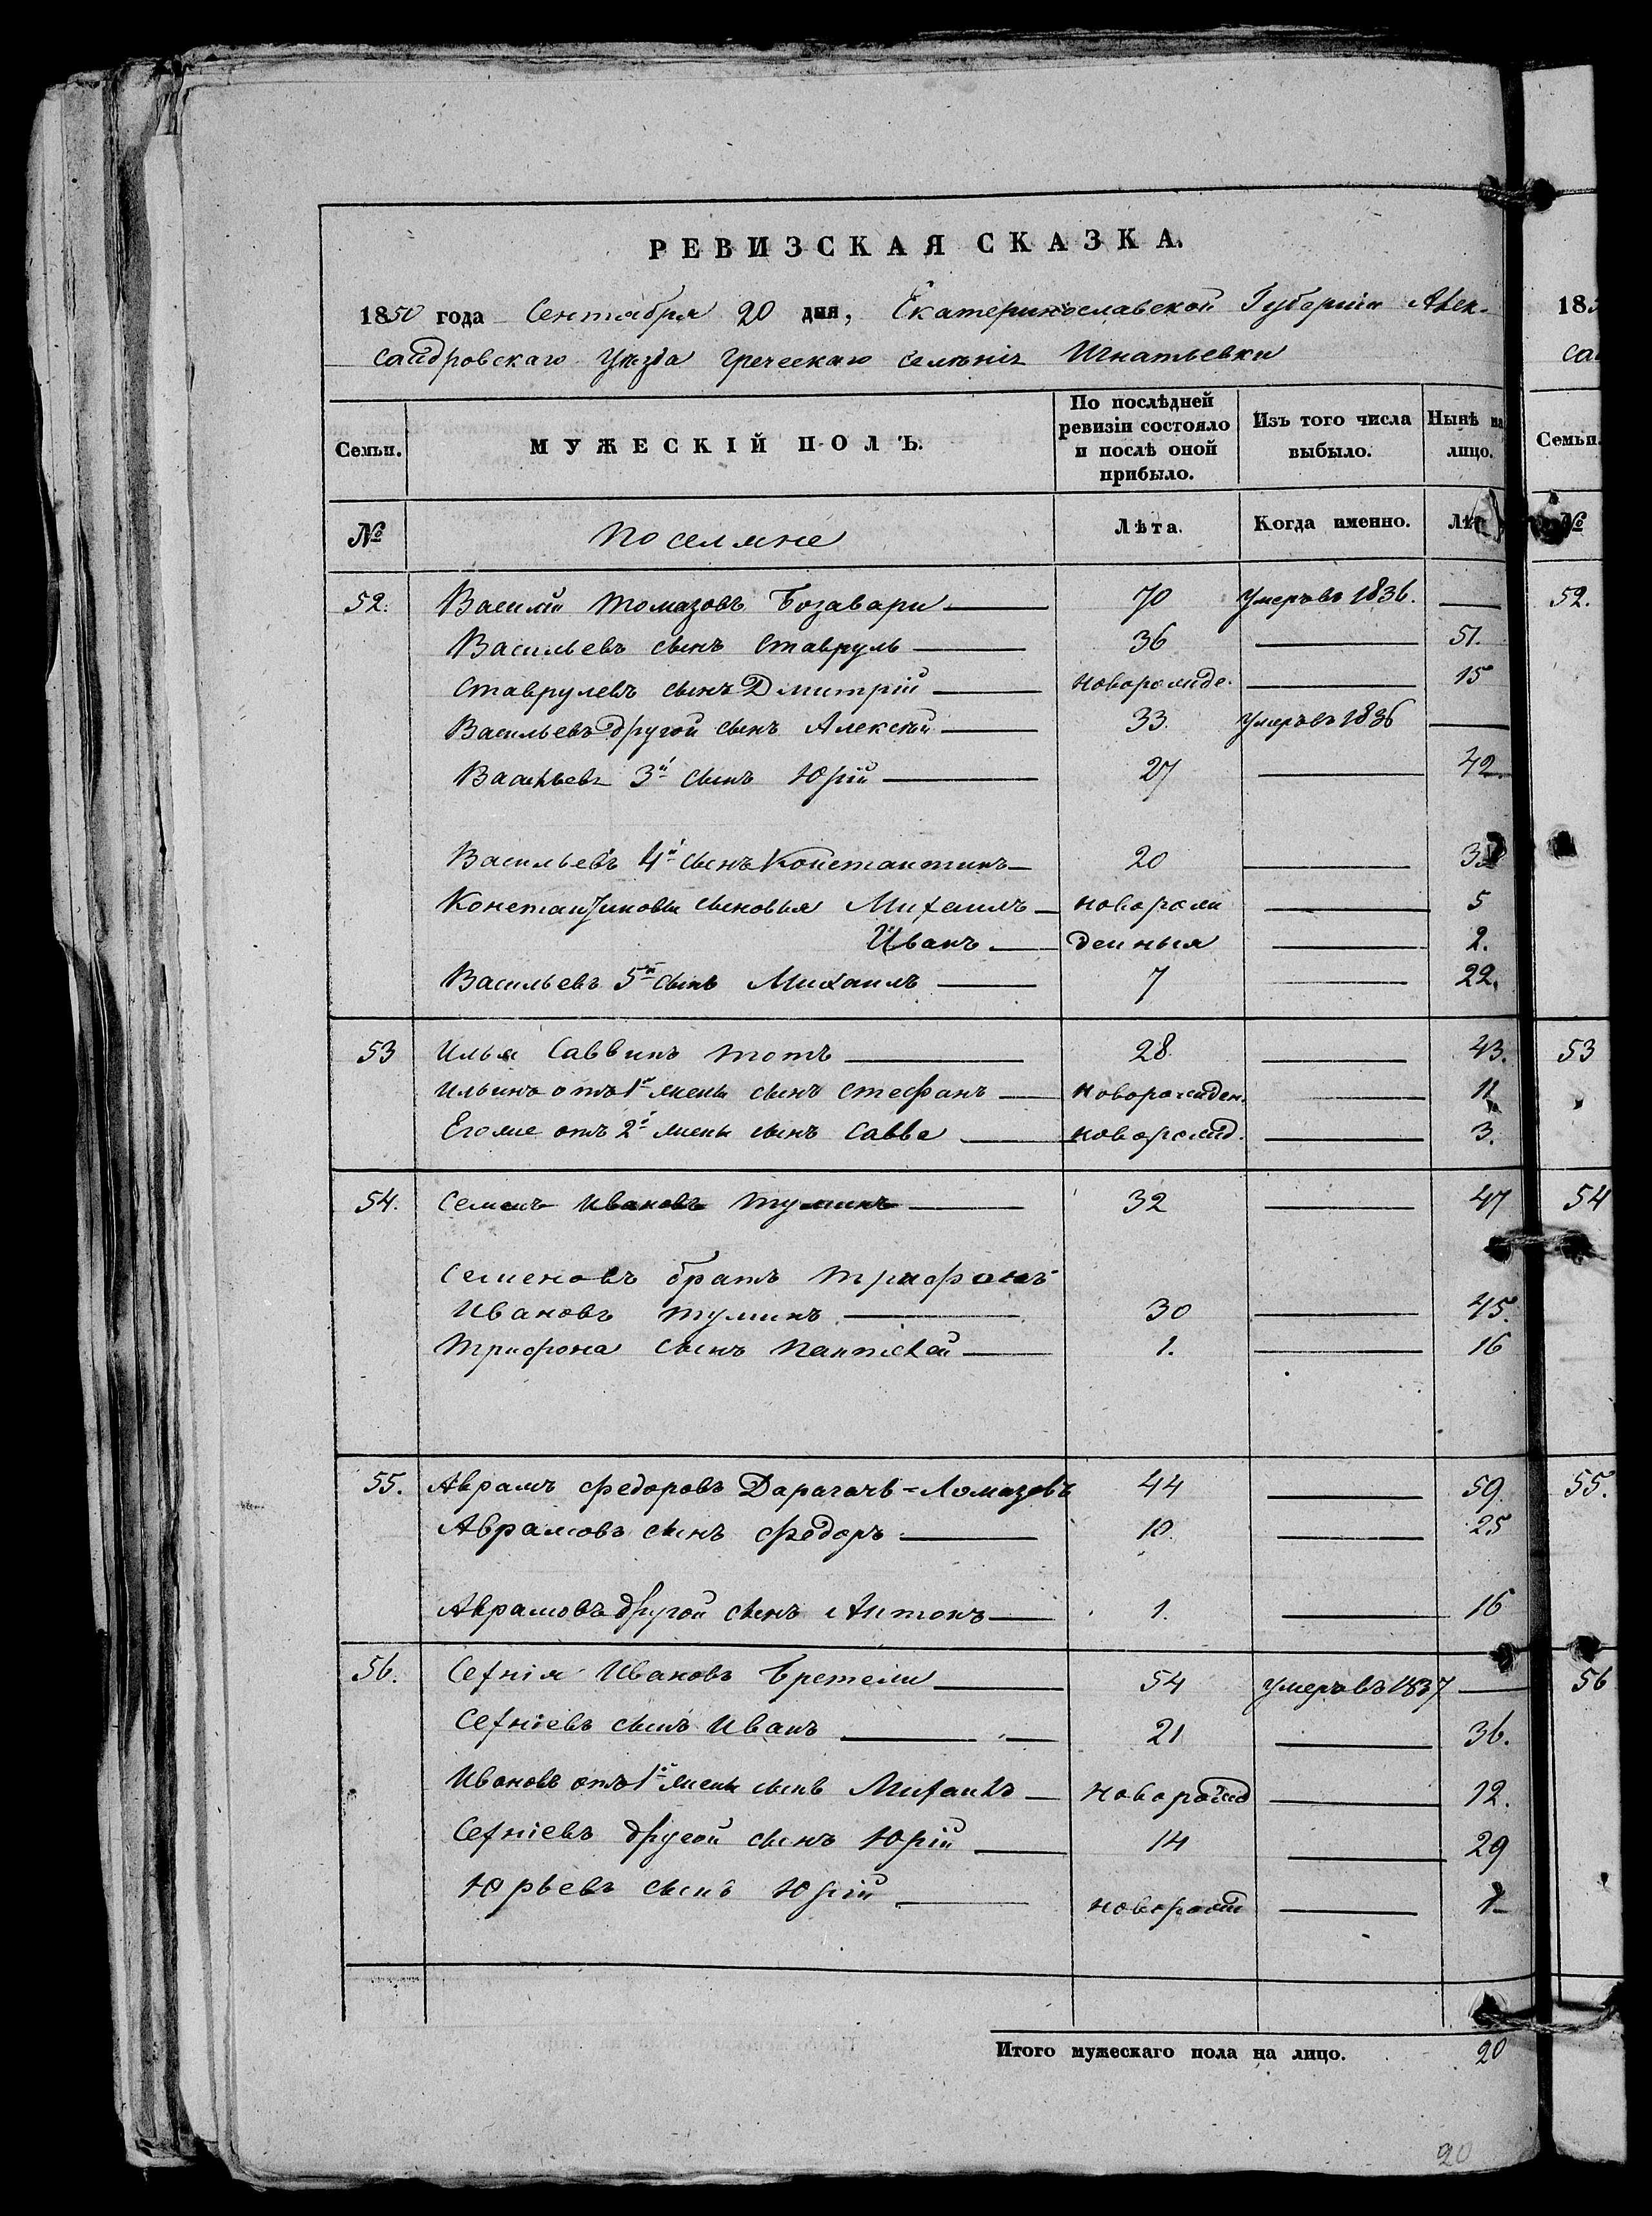 РЕВИЗСКАЯ СКАЗКА.
1850 года Сентября 20 дня, Екатеринославской Губерніи Алек-
сандровскаго Уѣзда Греческаго селѣнія Игнатьевки
Семьи. МУЖЕСКІЙ ПОЛЪ. По послѣдней ревизіи состояло и послѣ оной прибыло. Изъ того числа выбыло. Нынѣ на лицо.
№ Поселяне Лѣта. Когда именно. Лѣ
52. Василій Томазовъ Бозавари 70 Умеръ въ 1836.
Васильевъ сынъ Ставруль 36 51.
Ставрулевъ сынъ Дмитрій новорожде. 15
Васильевъ другой сынъ Алексѣй 33. Умеръ въ 1836
Васильевъ 3й сынъ Юрій 27 42
Васильевъ 4й сынъ Константинъ 20 35
Константиновы сыновья Михаилъ новорож 5
Иванъ денныя 2.
Васильевъ 5й сынъ Михаилъ 7 22.
53 Илья Саввинъ Тотъ 28. 43.
Ильинъ отъ 1й жены сынъ Стефанъ новорожден. 11
Егоже отъ 2й жены сынъ Савва новорожд. 3.
54. Семенъ Ивановъ Туминъ 32 47
Семеновъ братъ Трифонъ
Ивановъ Туминъ 30 45.
Трифона сынъ Пантелей 1. 16
55. Аврамъ Федоровъ Дарагачъ-Ломазовъ 44 59.
Аврамовъ сынъ Федоръ 10. 25
Аврамовъ другой сынъ Антонъ 1. 16
56. Сехнія Ивановъ Бретели 54 Умеръ въ 1837
Сехніевъ сынъ Иванъ 21 36.
Ивановъ отъ 1й жены сынъ Михаилъ новорожд 12.
Сехніевъ другой сынъ Юрій 14 29
Юрьевъ сынъ Юрій новорож 1
Итого мужескаго пола на лицо. 20
20
185
са
Семьи.
№
52.
53
54
55.
56